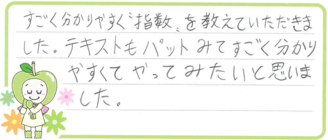 すごく分かりやすく〝指数〟を教えていただきま
した。テキストもパットみてすごく分かり
やすくてやってみたいと思いま
した。